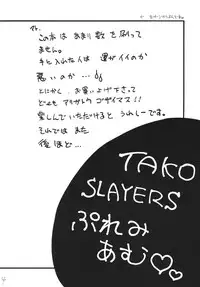 この本は あまり数を刷って
ません。
手に入れた人は 運がイイのか
悪いのか…
とにかく、お買い上げ下さって
どーも アリガトウ ゴザイマス!!
楽しんでいただけると うれしーです。
それでは また
後ほど…
TAKO
SLAYERS
ぷれみ
あむ♡♡
4